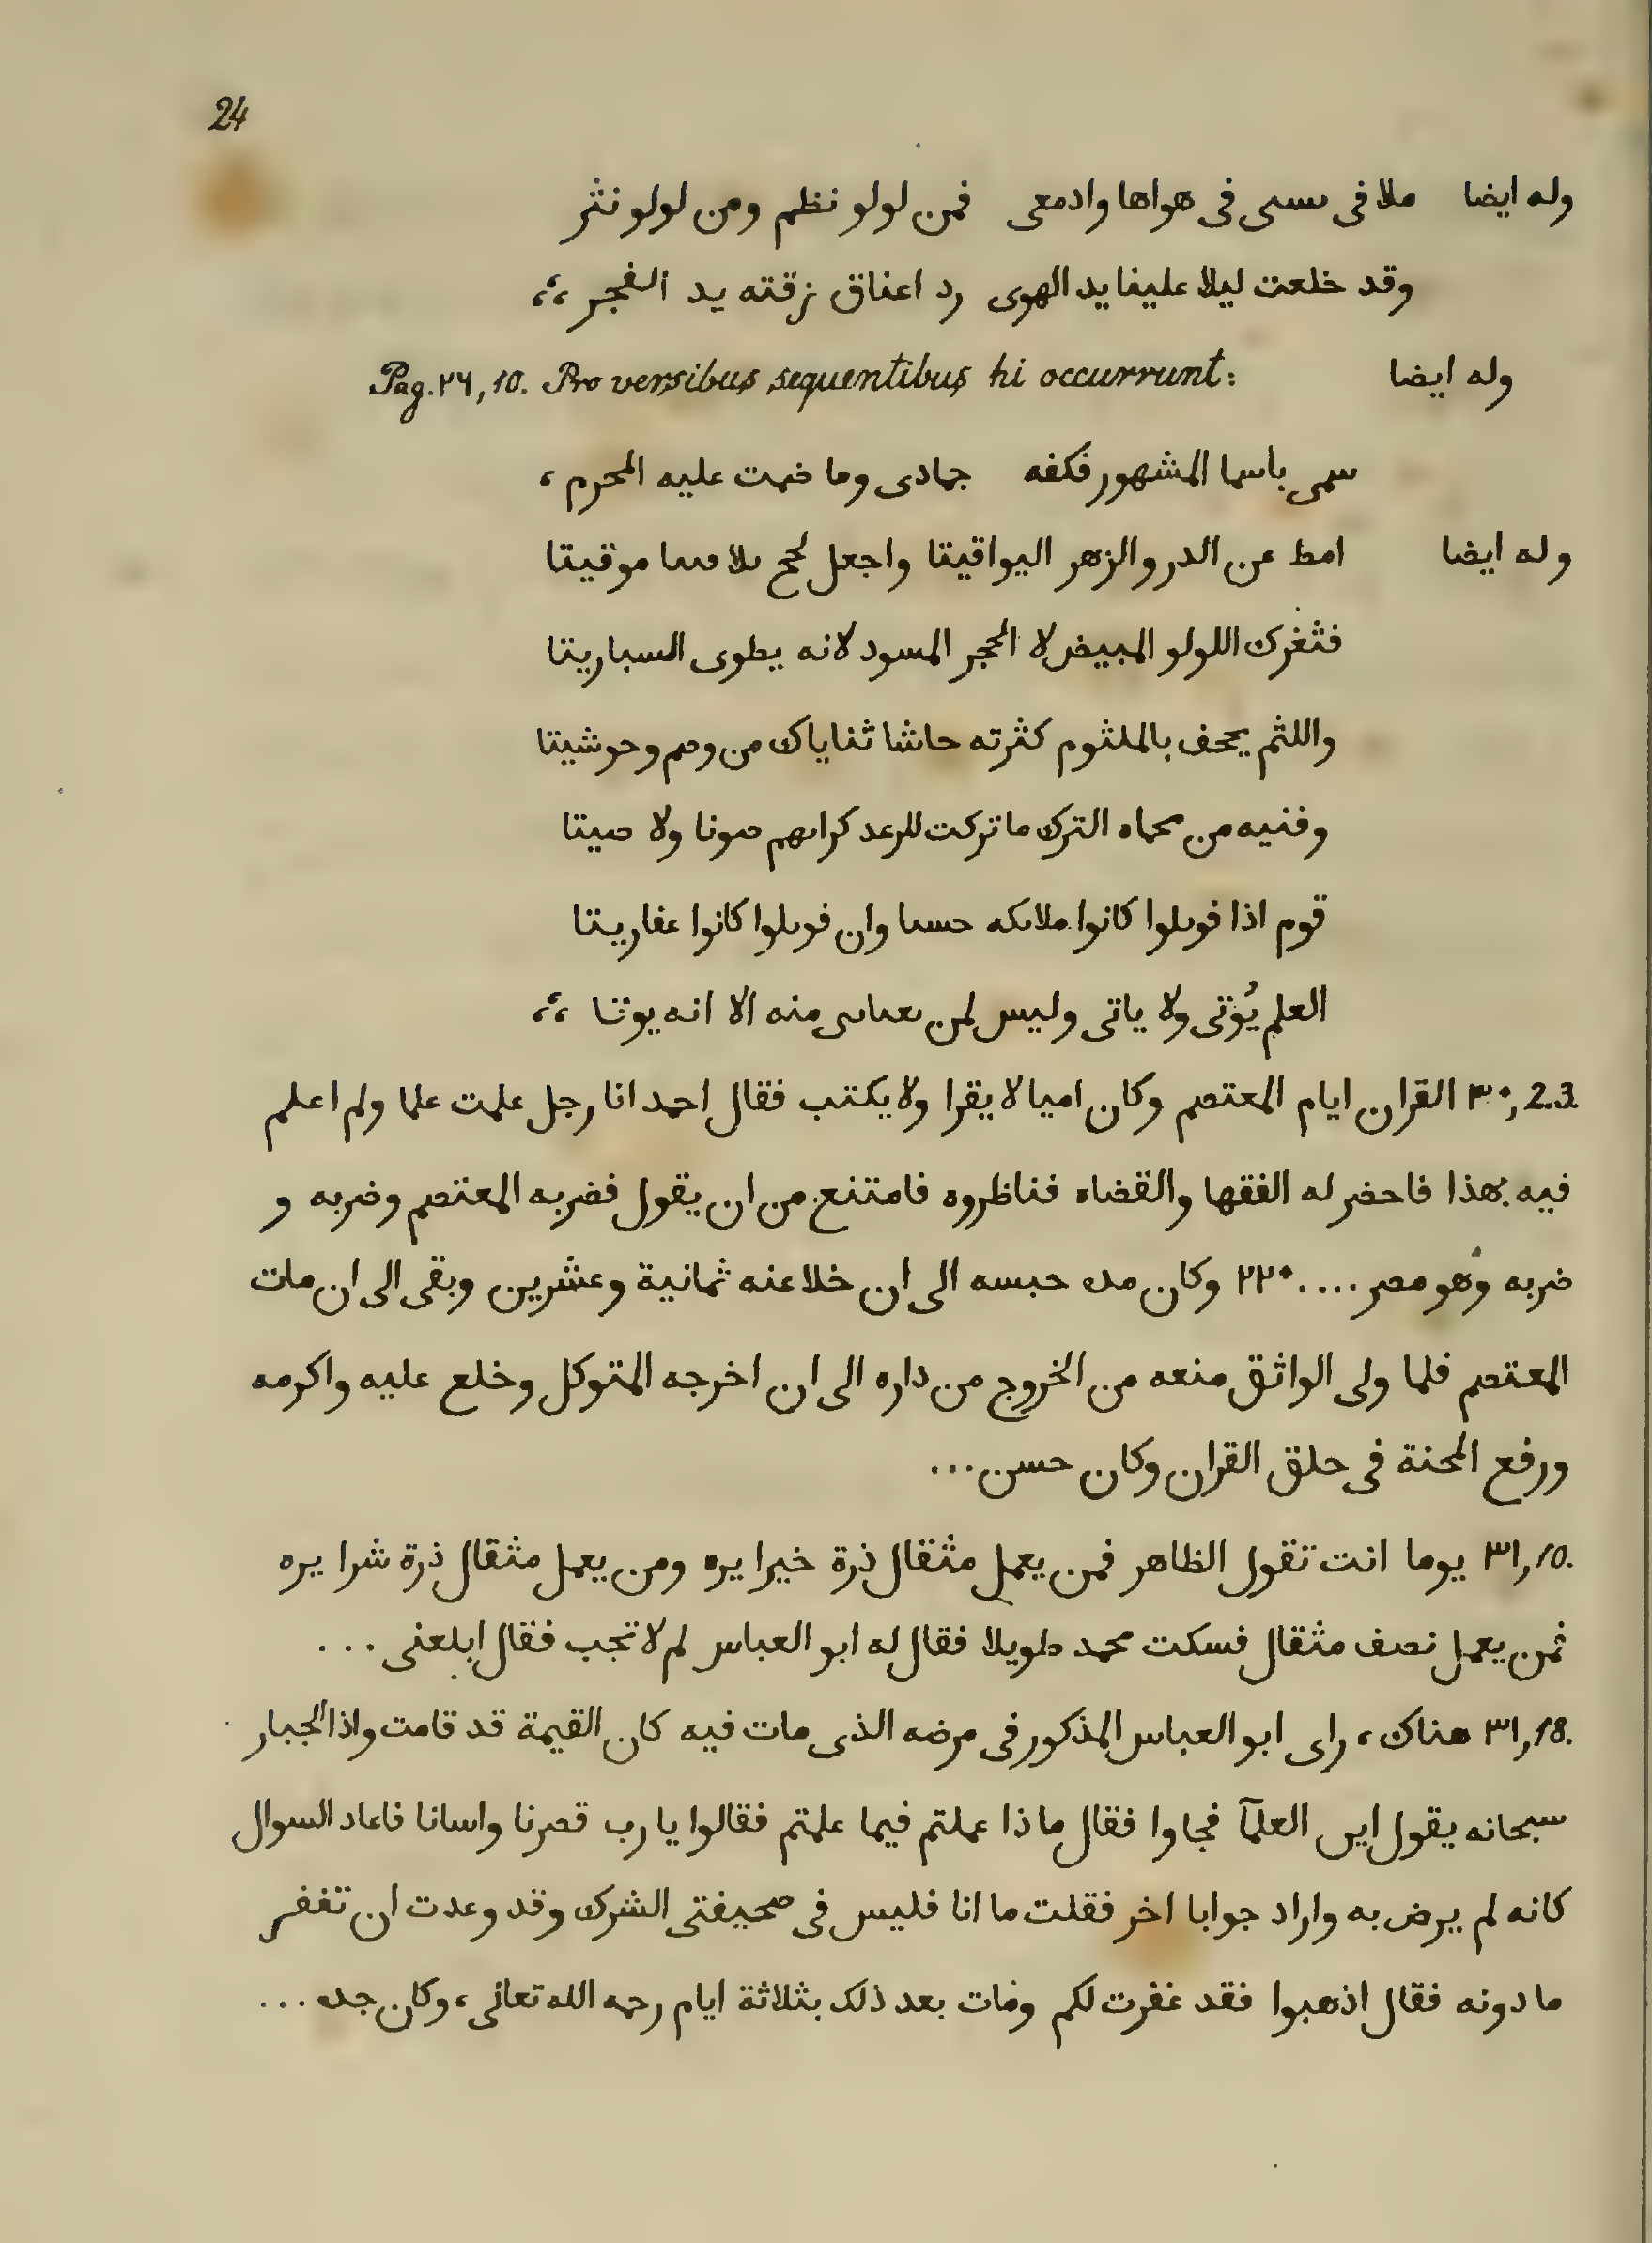 24
وله ايضا ملا فى سسى فى هواها وادمعى فمن لولو نظم ومن لولو نثر
وقد خلعت ليلا علينا يد الهوى رد اعناق نزقته يد الفجر ؛؛
وله ايضا Pag. ٢٤, 10. Pro versibus sequentibus hi occurrunt:
سمى باسما المشهور فكفه جمادى وما ضمت عليه المحرم ،
وله ايضا امط عن الدر والزهر اليواقيتا واجعل لحج ملا مسا موقيتا
فثغرك اللولو المبيض لا الحجر المسود لانه يطوى السباريتا
واللثم يجحف بالملثوم كثرته حاشا ثناياك من وصم وحوشيتا
وفنيه من حماه الترك ما تركت للرعد كراىهم صونا ولا صيتا
قوم اذا قوىلوا كانوا ملاىكه حسىا وان قوىلوا كانوا عفاريتا
العلم يُؤتى ولا ياتى وليس لمن منه الا انه يوتا ؛؛
٣٠, 2.3. القران ايام المعتصم وكان اميا لا يقرا ولا يكتب فقال احمد انا رجل علمت علما ولم اعلم
فيه بهذا فاحضر له الفقها والقضاه فناظروه فامتنع من ان يقول فضربه المعتصم وضربه و
ضربه وهو مصر .... ٢٢٠ وكان مده حبسه الى ان خلا عنه ثمانية وعشرين وبقى الى ان مات
المعتصم فلما ولى الواثق منعه من الخروج من داره الى ان اخرجه المتوكل وخلع عليه واكرمه
ورفع المحنة فى حلق القران وكان حسن ...
٣١, 10. يوما انت تقول الظاهر فمن يعمل مثقال ذرة خيرا يره ومن يعمل مثقال ذرة شرا يره
ثمن يعمل نصف مثقال فسكت محمد طويلا فقال له ابو العباس لم لا تجب فقال ابلعنى ...
٣١, 18. هناك ، راى ابو العباس المذكور فى مرضه الذى مات فيه كان القيمة قد قامت واذا الجبار
سبحانه يقول اين العلمآ فجاوا فقال ماذا عملتم فيما علمتم فقالوا يا رب قصرنا واسانا فاعاد السوال
كانه لم يرض به واراد جوابا اخر فقلت ما انا فليس فى صحيفتى الشرك وقد وعدت ان تغفر
ما دونه فقال اذهبوا فقد غفرت لكم ومات بعد ذلك بثلاثة ايام رحمه الله تعالى ، وكان جده ...